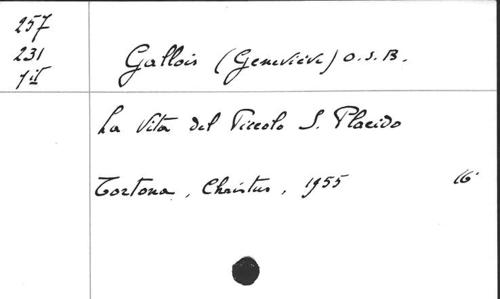 257
231
Gallois (Geneviève) O.S.B.
La Vita del Piccolo S. Placido
Tortona, Christus, 1955 16°